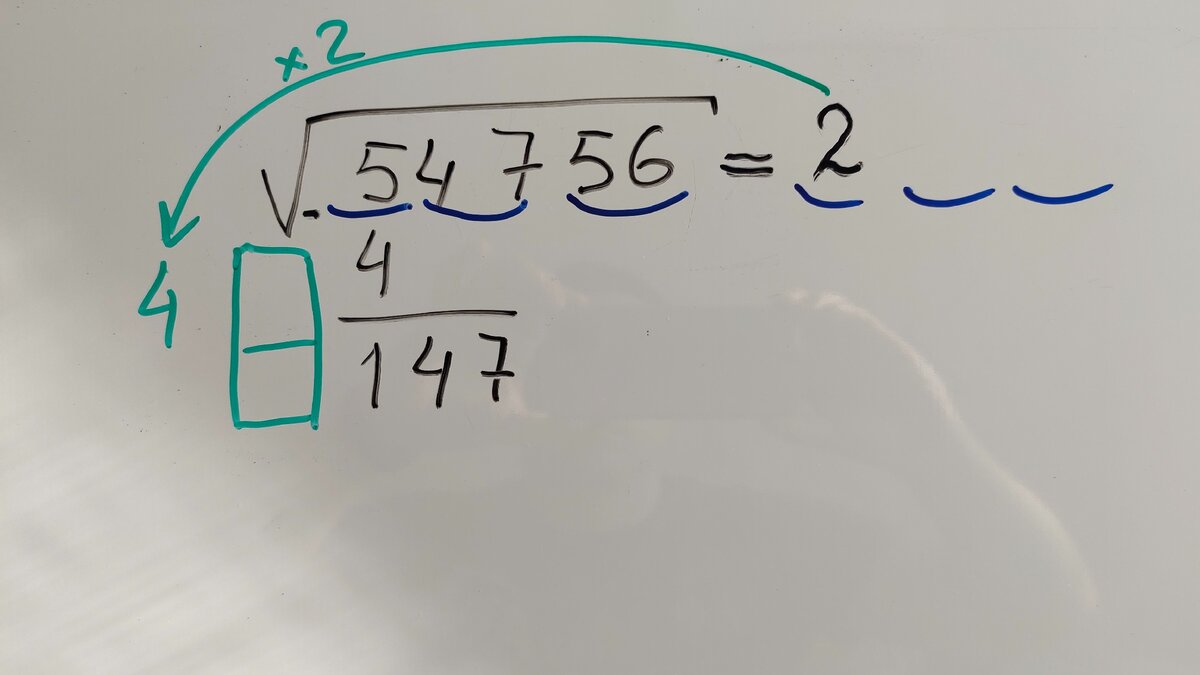 ×2
√54756 = 2
4
4
147